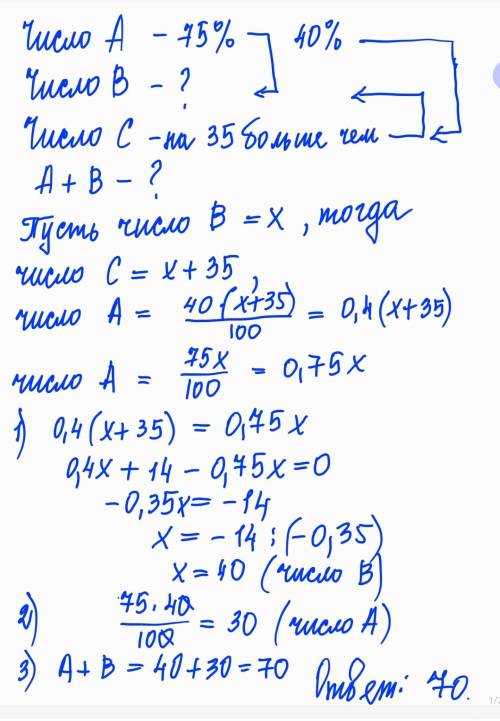 Число А – 75% 40%
Число В – ?
Число С – на 35 больше чем
А + В – ?
Пусть число В = х, тогда
число С = х + 35,
число А = 40(х+35)/100 = 0,4(х+35)
число А = 75х/100 = 0,75х
1) 0,4(х+35) = 0,75х
0,4х + 14 – 0,75х = 0
-0,35х = -14
х = -14 : (-0,35)
х = 40 (число В)
2) 75·40/100 = 30 (число А)
3) А + В = 40 + 30 = 70 Ответ: 70.